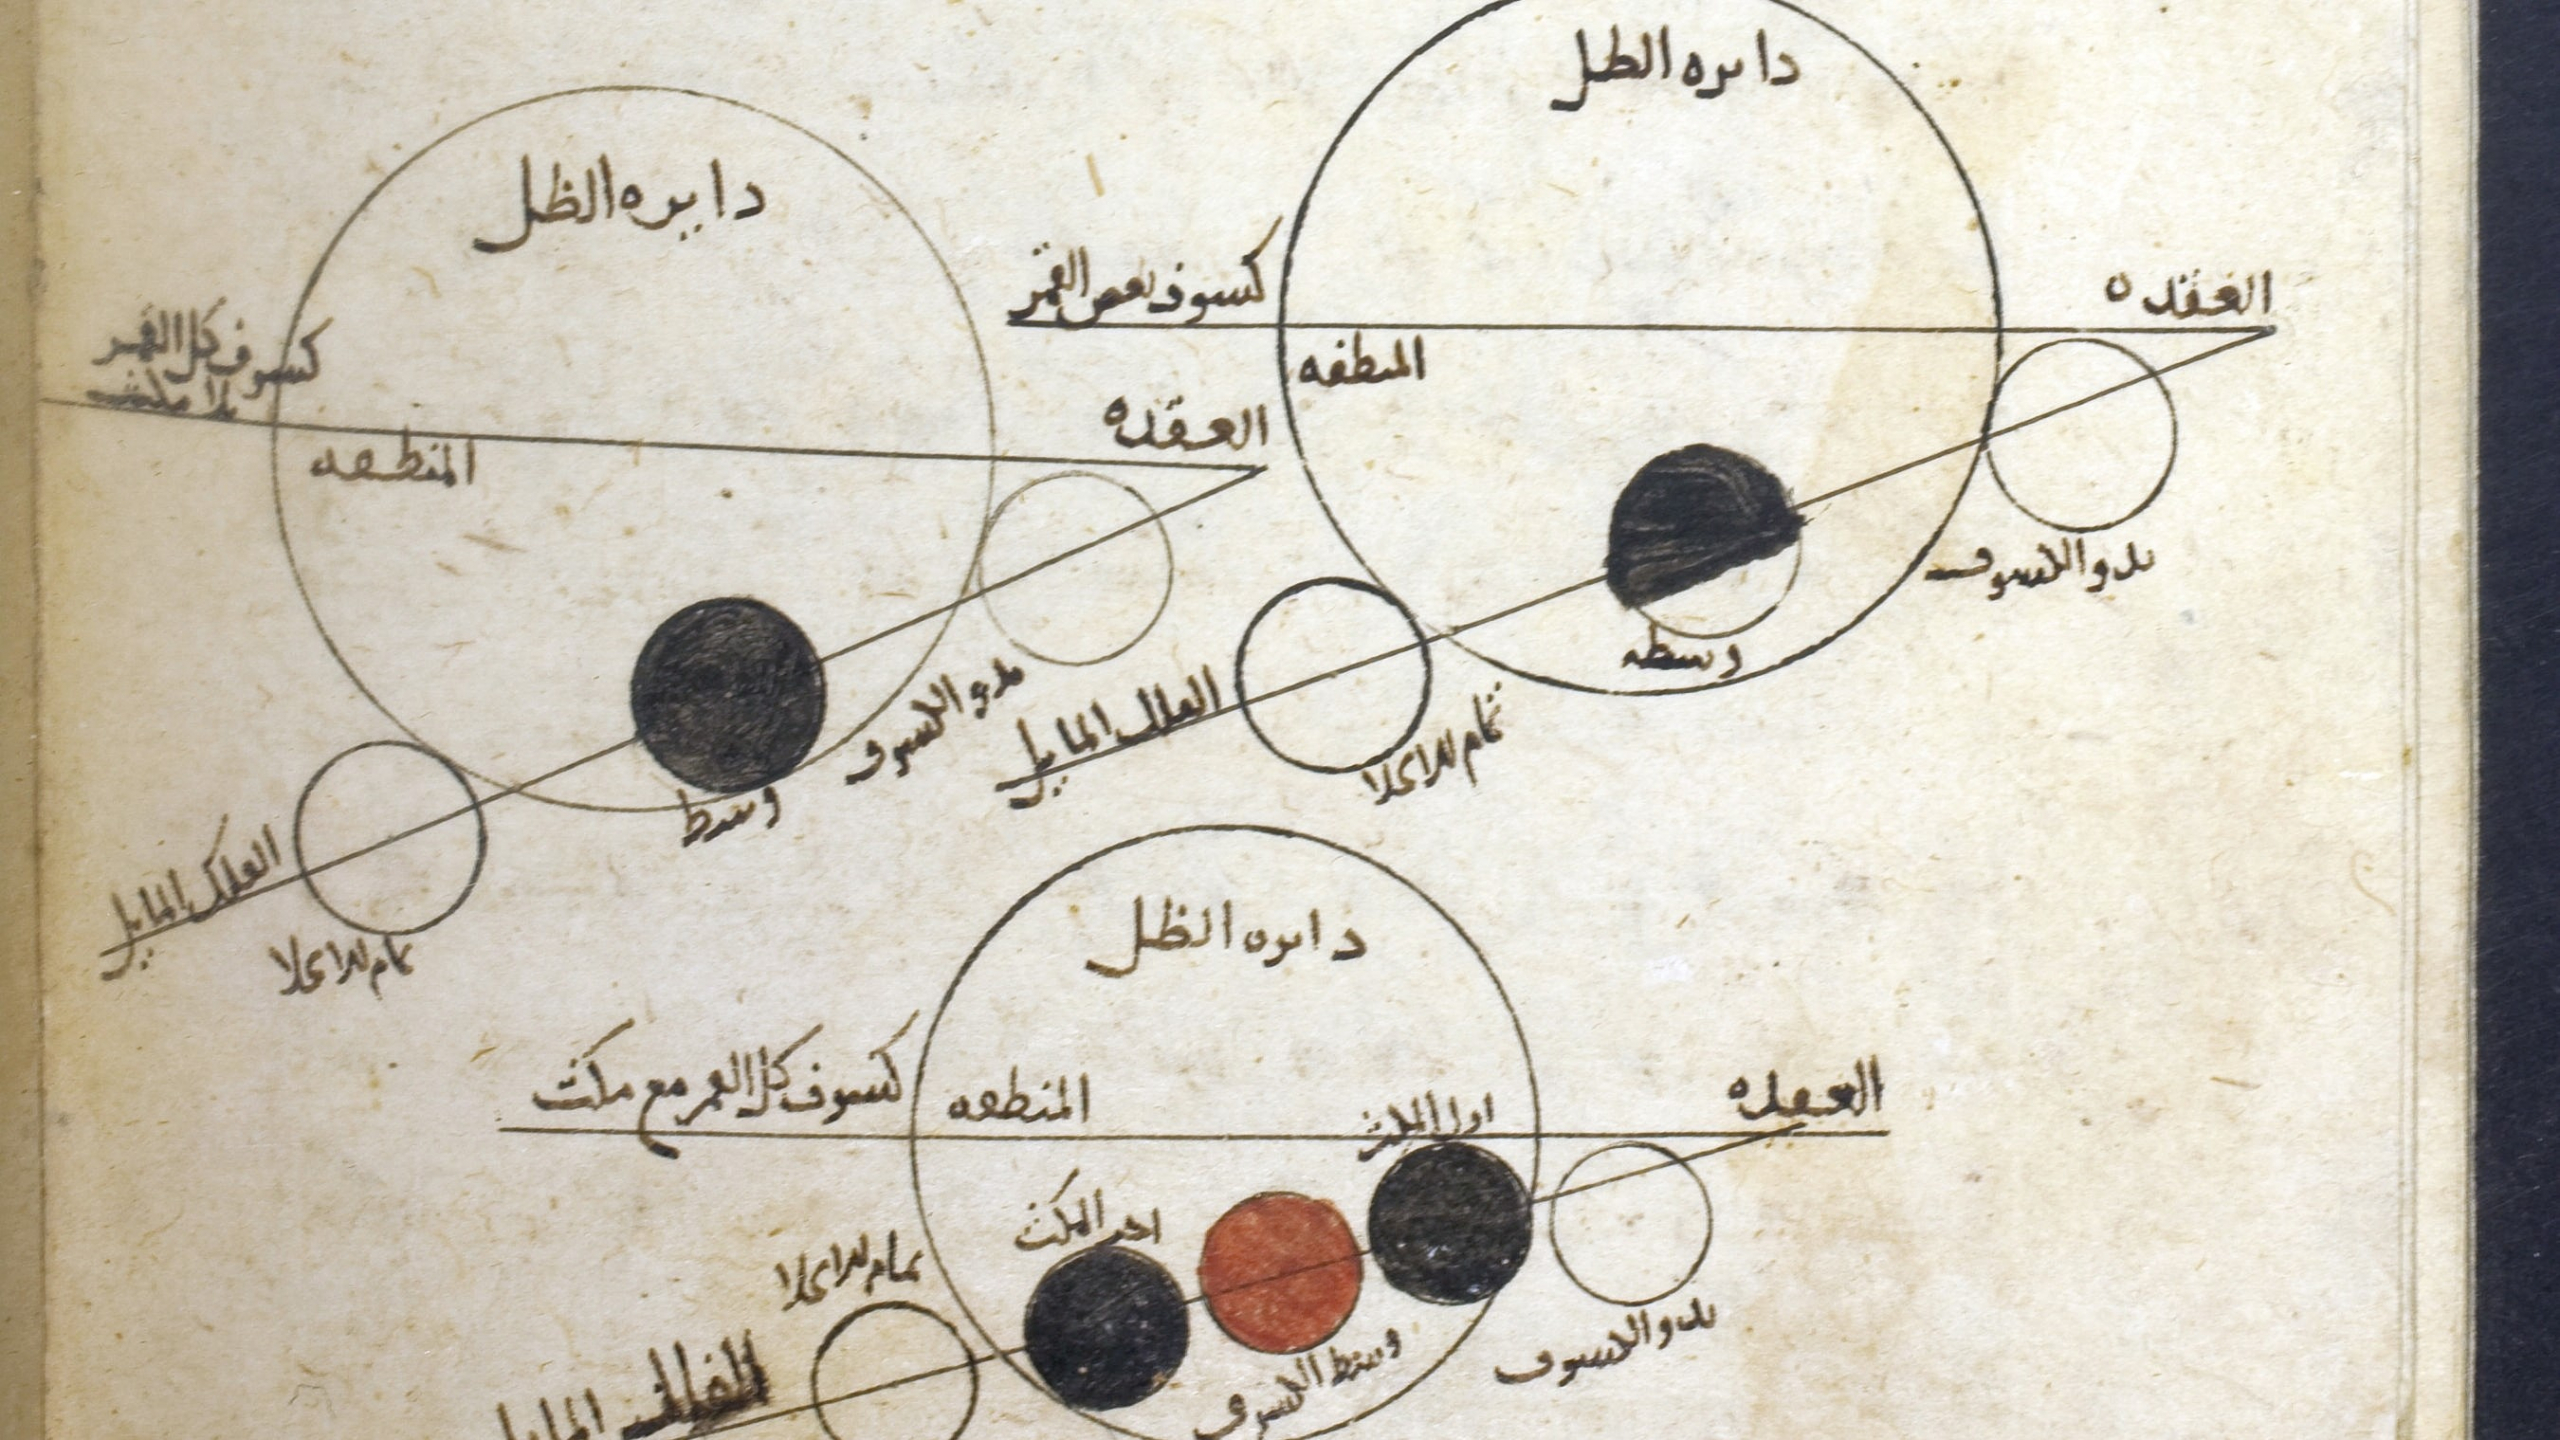 دايره الظل
كسوف بعض القمر
العقده
المنطقه
بدو الكسوف
وسطه
الفلك المايل
تمام الانجلا
دايره الظل
كسوف كل القمر
بلا مكث
العقده
المنطقه
بدو الكسوف
وسط
الفلك المايل
تمام الانجلا
دايره الظل
كسوف كل القمر مع مكث
المنطقه
العقده
اول المكث
اخر المكث
تمام الانجلا
بدو الكسوف
وسط الكسوف
الفلك المايل